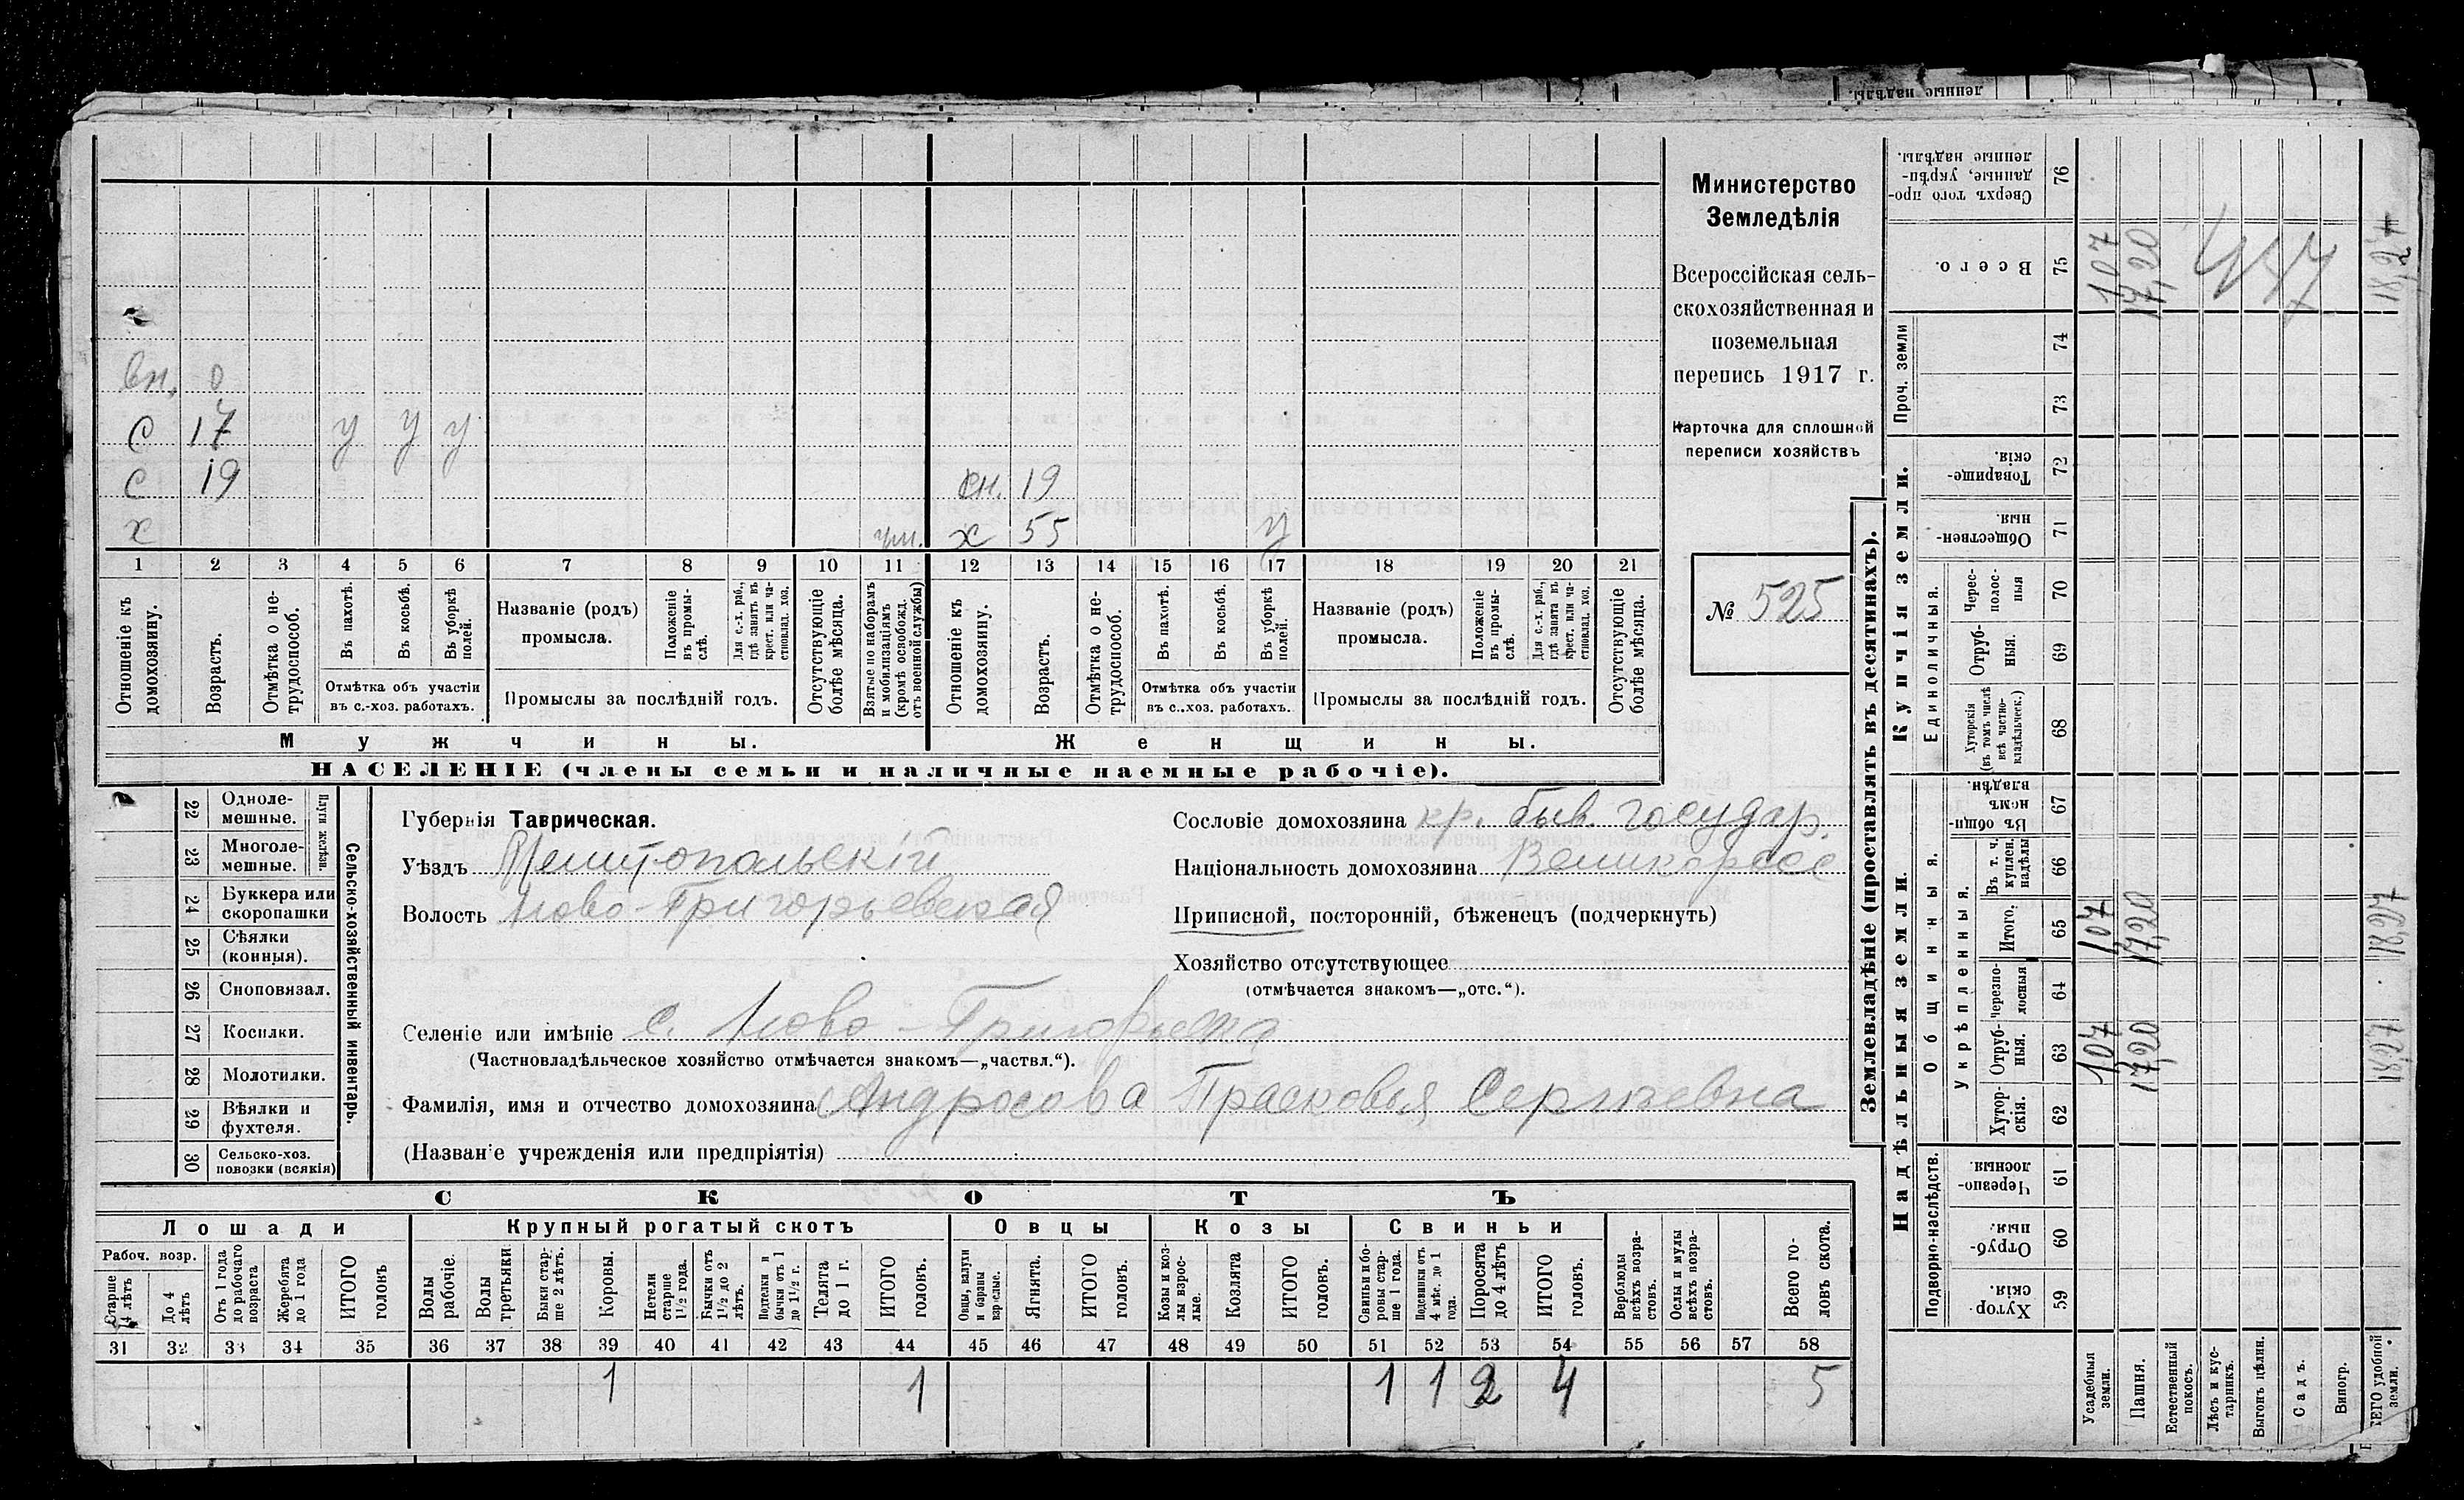 ленные надѣлы.
Министерство
Земледѣлія
Всероссійская сель-
скохозяйственная и
поземельная
перепись 1917 г.
Карточка для сплошной
переписи хозяйствъ
№ 525
вн. 0
С 17 у у у
С 19 сн. 19
х ум. х 55 у
1 2 3 4 5 6 7 8 9 10 11 12 13 14 15 16 17 18 19 20 21
Отношеніе къ домохозяину.
Возрастъ.
Отмѣтка о не-трудоспособ.
Въ пахотѣ.
Въ косьбѣ.
Въ уборкѣ полей.
Отмѣтка объ участіи
въ с.-хоз. работахъ.
Названіе (родъ)
промысла.
Положеніе въ промы-слѣ.
Для с.-х. раб., гдѣ занятъ въ крест. или ча-стновлад. хоз.
Промыслы за послѣдній годъ.
Отсутствующіе болѣе мѣсяца.
Взятые по наборамъ и мобилизаціямъ (кромѣ освобожд. отъ военной службы)
Отношеніе къ домохозяину.
Возрастъ.
Отмѣтка о не-трудоспособ.
Въ пахотѣ.
Въ косьбѣ.
Въ уборкѣ полей.
Отмѣтка объ участіи
въ с..хоз. работахъ.
Названіе (родъ)
промысла.
Положеніе въ промы-слѣ.
Для с.-х. раб., гдѣ занята въ крест. или ча-стновлад. хоз.
Промыслы за послѣдній годъ.
Отсутствующіе болѣе мѣсяца.
Мужчины.
Женщины.
НАСЕЛЕНІЕ (члены семьи и наличные наемные рабочіе).
Сельско-хозяйственный инвентарь.
Плуги желѣзн.
22 Однолемешные.
23 Многолемешные.
24 Буккера или скоропашки
25 Сѣялки (конныя).
26 Сноповязал.
27 Косилки.
28 Молотилки.
29 Вѣялки и фухтеля.
30 Сельско-хоз. повозки (всякія)
Губернія Таврическая.
Уѣздъ Мелитопольскій
Волость Ново-Григорьевская
Сословіе домохозяина кр. быв. государ.
Національность домохозяина Великоросс
Приписной, посторонній, бѣженецъ (подчеркнуть)
Хозяйство отсутствующее
(отмѣчается знакомъ—„отс.“).
Селеніе или имѣніе с. Ново-Григорьевка
(Частновладѣльческое хозяйство отмѣчается знакомъ—„частвл.“).
Фамилія, имя и отчество домохозяина Андросова Прасковья Сергѣевна
(Названіе учрежденія или предпріятія)
СКОТЪ
Лошади
Крупный рогатый скотъ
Овцы
Козы
Свиньи
Рабоч. возр.
Старше 4 лѣтъ
До 4 лѣтъ
Отъ 1 года до рабочаго возраста
Жеребята до 1 года
ИТОГО головъ
Волы рабочіе.
Волы третьяки.
Быки стар-ше 2 лѣтъ.
Коровы.
Нетели старше 1½ года.
Бычки отъ 1½ до 2 лѣтъ.
Подтелки и бычки отъ 1 до 1½ г.
Телята до 1 г.
ИТОГО головъ.
Овцы, валухи и бараны взрослые.
Ягнята.
ИТОГО головъ.
Козы и коз-лы взрос-лые.
Козлята
ИТОГО головъ.
Свиньи и бо-ровы стар-ше 1 года.
Подсвинки отъ 4 мѣс. до 1 года.
Поросята до 4 лѣтъ
ИТОГО головъ.
Верблюды всѣхъ возра-стовъ.
Ослы и мулы всѣхъ возра-стовъ.
Всего го-ловъ скота.
31 32 33 34 35 36 37 38 39 40 41 42 43 44 45 46 47 48 49 50 51 52 53 54 55 56 57 58
1 1 1 1 2 4 5
Землевладѣніе (проставлять въ десятинахъ).
Надѣльныя земли.
Купчія земли.
Проч. земли
Подворно-наслѣдств.
Общинныя.
Укрѣпленныя.
Единоличныя.
59 Хутор-скія.
60 Отруб-ныя.
61 Черезпо-лосныя.
62 Хутор-скія.
63 Отруб-ныя.
64 черезпо-лосныя
65 Итого.
66 Въ т. ч. куплен. надѣлы
67 Въ общин-номъ владѣн.
68 Хуторскія (въ томъ числѣ всѣ частно-владѣльческ.)
69 Отруб-ныя.
70 Черес-полос-ныя
71 Обществен-ныя.
72 Товарище-скія.
73
74
75 Всего.
76 Сверхъ того про-данные, укрѣп-ленные надѣлы.
Усадебныя земли.
Пашня.
Естественный покосъ.
Лѣсъ и кус-тарникъ.
Выгонъ цѣлин.
Садъ.
Виногр.
ВСЕГО удобной земли.
107 107 107
17,20 17,20 17,20
447